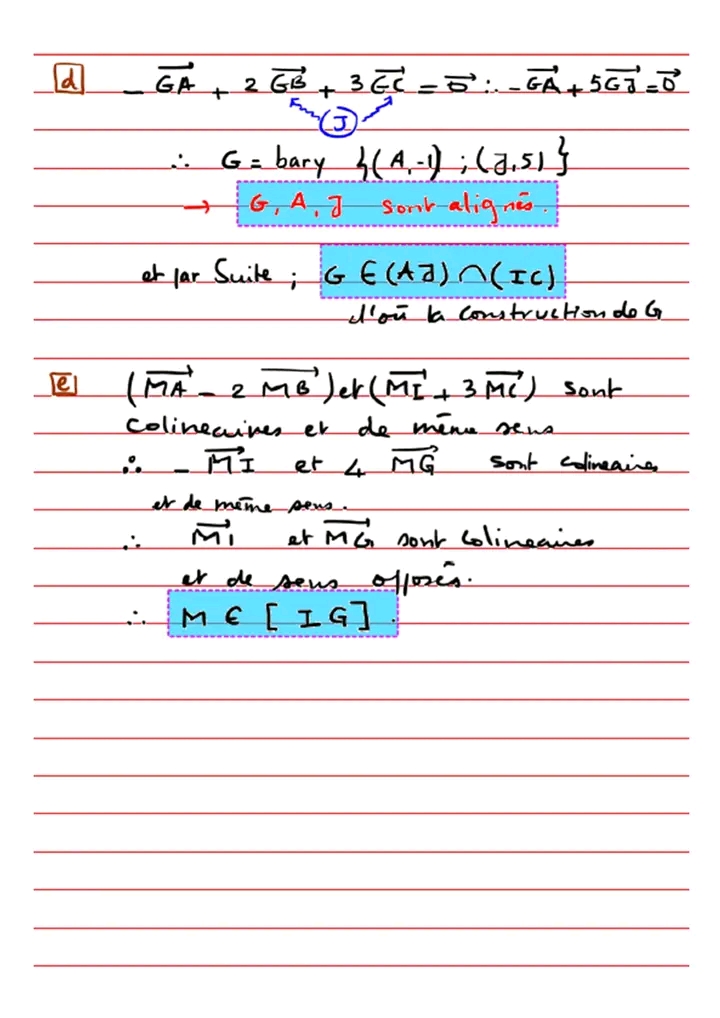 d - GA⃗ + 2 GB⃗ + 3 GC⃗ = 0⃗ ∴ -GA⃗ + 5GJ⃗ = 0⃗
J
∴ G = bary {(A,-1) ; (J,5)}
→ G, A, J sont alignés.
et par Suite ; G ∈ (AJ) ∩ (IC)
d'où la construction de G
e (MA⃗ - 2 MB⃗) et (MI⃗ + 3 MC⃗) sont
colineaires et de même sens
∴ - MI⃗ et 4 MG⃗ sont colineaires
et de même sens.
∴ MI⃗ et MG⃗ sont colineaires
et de sens opposés.
∴ M ∈ [IG].